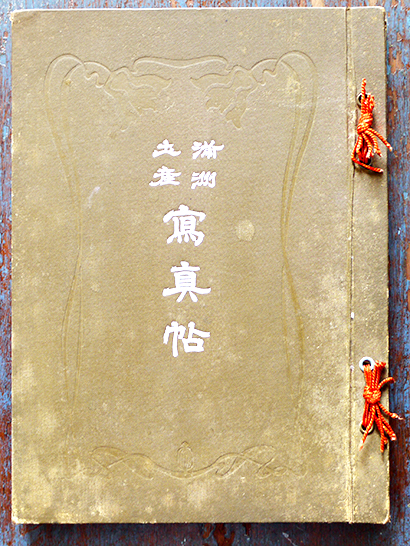 滿洲
土産
寫真帖